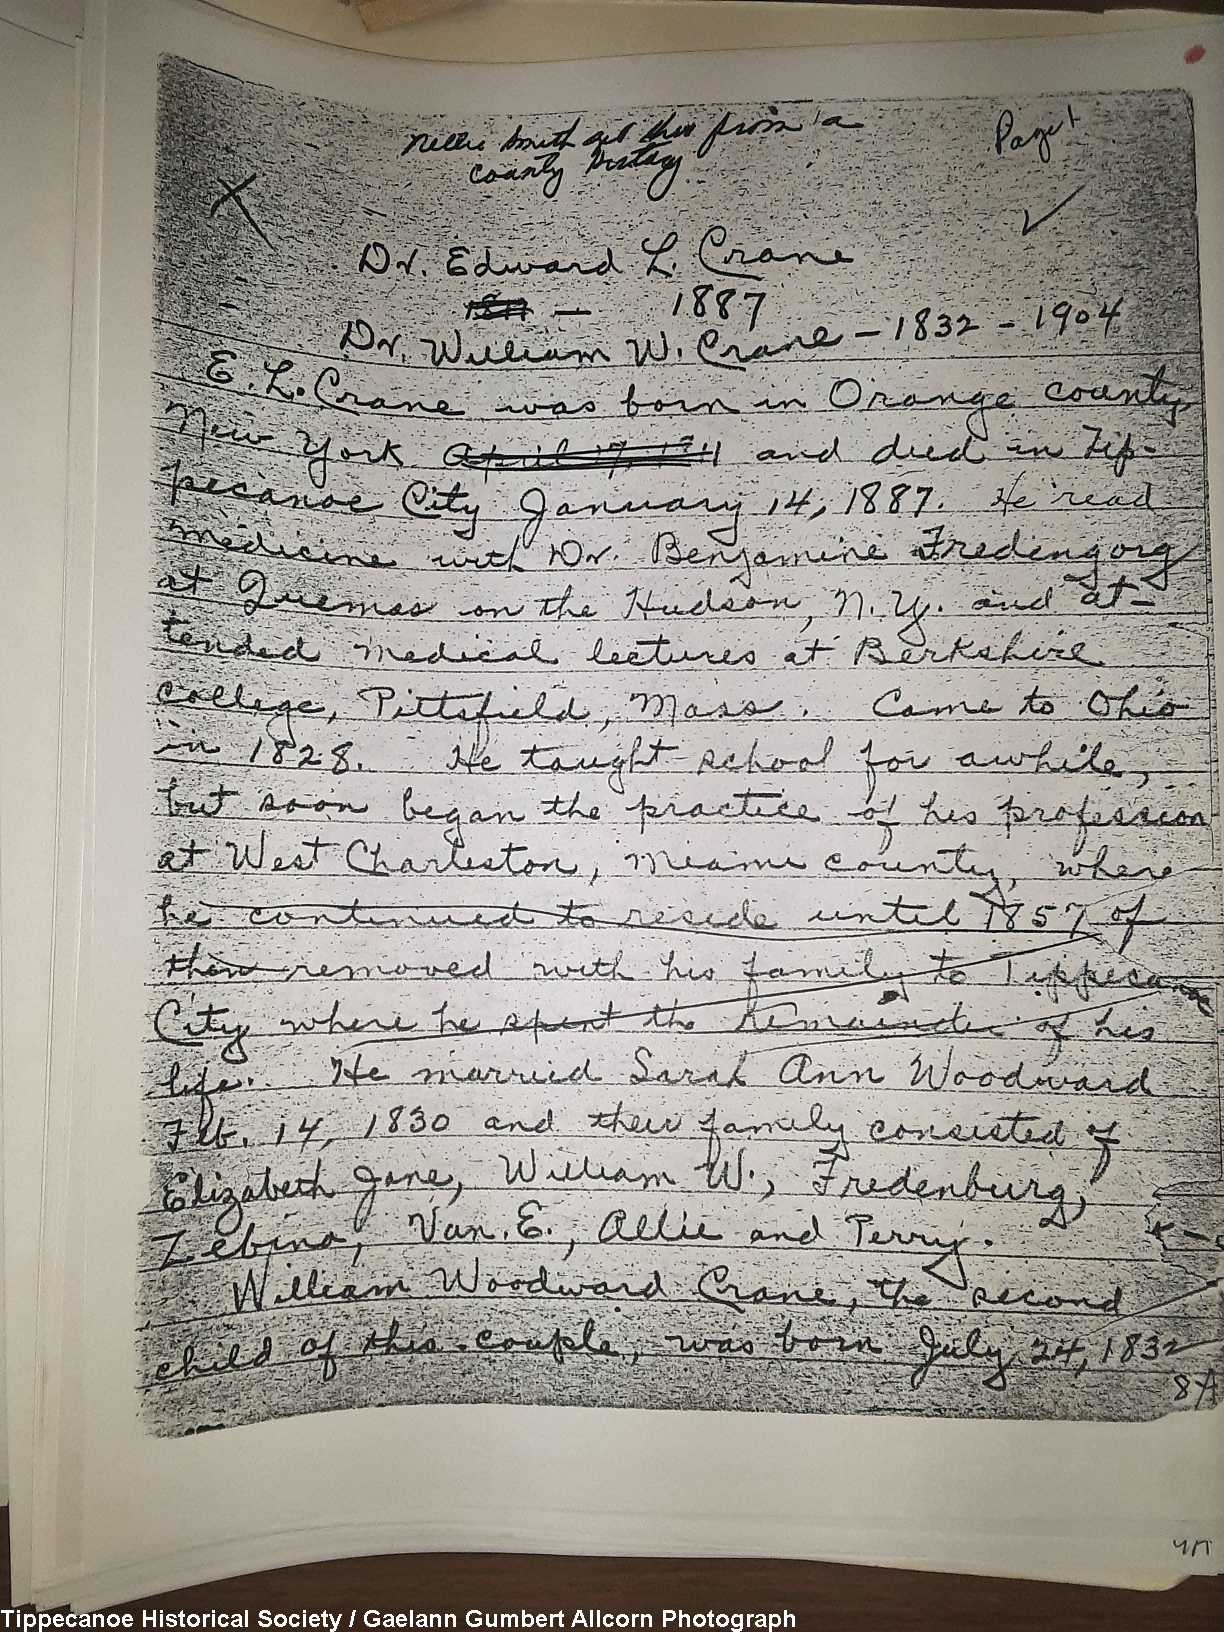 Nellie Smith got this from a
county history.
Page 1
Dr. Edward L. Crane
— 1887
Dr. William W. Crane – 1832 – 1904
E. L. Crane was born in Orange county,
New York April 17, and died in Tip-
pecanoe City January 14, 1887. He read
medicine with Dr. Benjamine Fredengorg
at Quemas on the Hudson, N.Y. and at-
tended medical lectures at Berkshire
college, Pittsfield, Mass. Came to Ohio
in 1828. He taught school for awhile,
but soon began the practice of his profession
at West Charleston, Miami county, where
he continued to reside until 1857 of
then removed with his family to Tippecanoe
City where he spent the remainder of his
life. He married Sarah Ann Woodward
Feb. 14, 1830 and their family consisted of
Elizabeth Jane, William W., Fredenburg,
Zebina, Van. E., Allie and Perry.
William Woodward Crane, the second
child of this couple, was born July 24, 1832
8A
Tippecanoe Historical Society / Gaelann Gumbert Allcorn Photograph